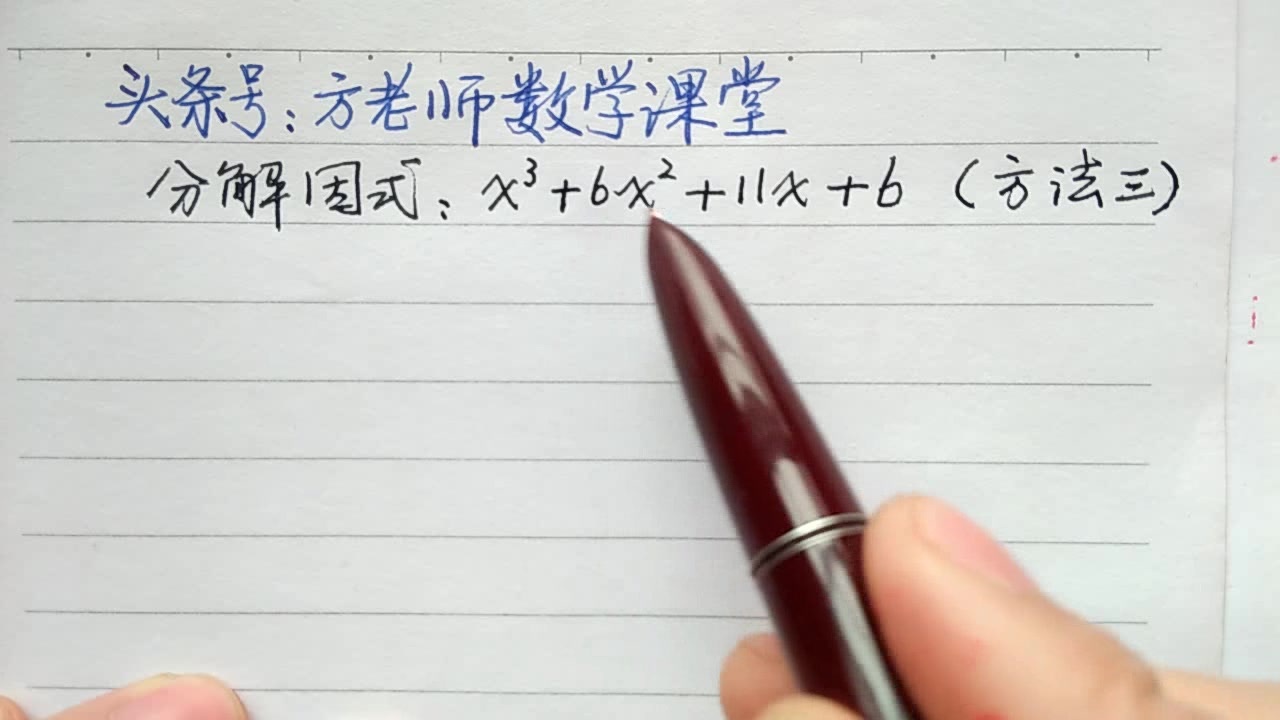 头条号：方老师数学课堂
分解因式：x³+6x²+11x+6（方法三）